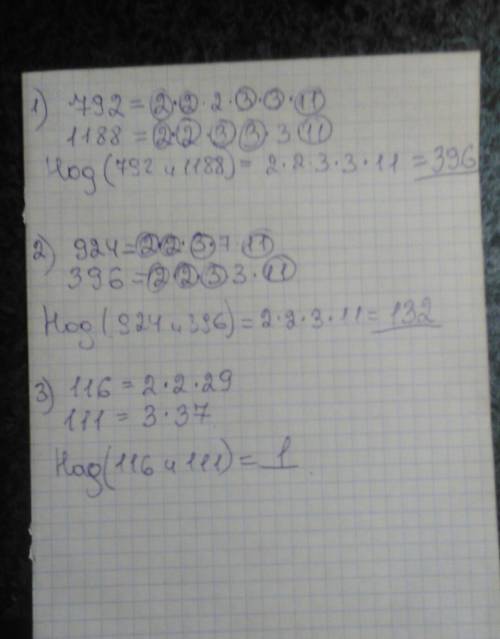 1) 792 = 2·2·2·3·3·11
1188 = 2·2·3·3·3·11
Нод(792 и 1188) = 2·2·3·3·11 = 396
2) 924 = 2·2·3·7·11
396 = 2·2·3·3·11
Нод(924 и 396) = 2·2·3·11 = 132
3) 116 = 2·2·29
111 = 3·37
Нод(116 и 111) = 1